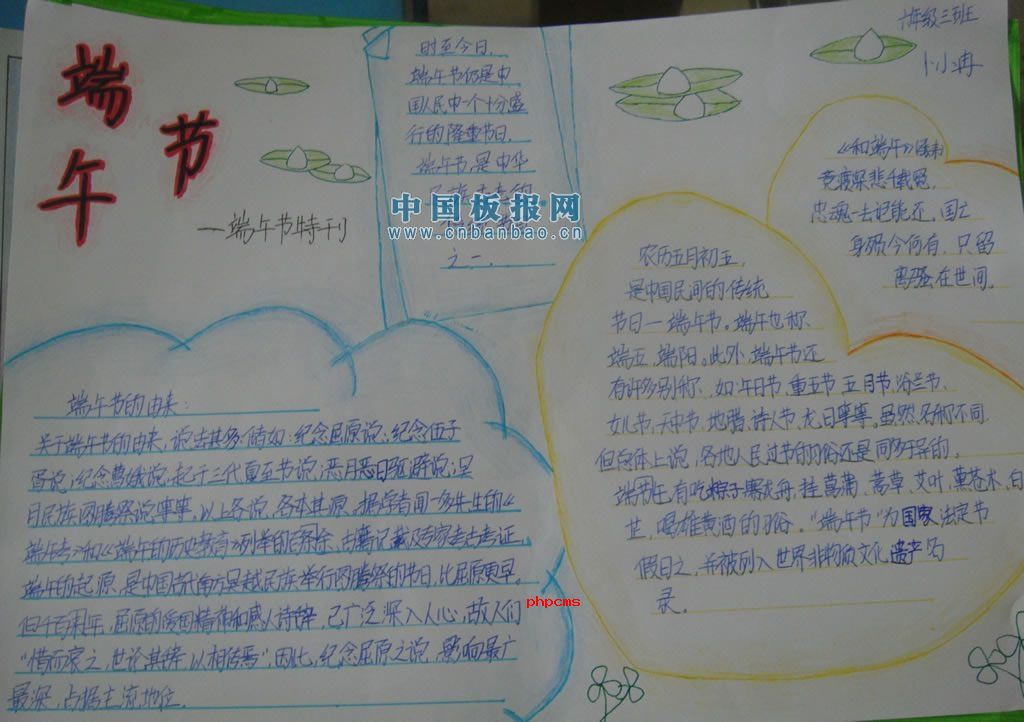 端午节
一端午节特刊
时至今日,
端午节仍是中
国人民中一个十分盛
行的隆重节日.
端午节是中华
之一.
中国板报网
www.cnbanbao.cn
六年级三班
卜小冉
《和端午》
竞渡深悲千载冤,
忠魂一去讵能还,国亡
身殒今何有,只留
离骚在世间.
农历五月初五,
是中国民间的传统
节日一端午节。端午也称
端五,端阳。此外,端午节还
有许多别称,如:午日节,重五节,五月节,浴兰节、
女儿节,天中节、地腊,诗人节,龙日等等。虽然名称不同
但总体上说,各地人民过节的习俗还是同多于异的。
有吃粽子,赛龙舟,挂菖蒲、蒿草、艾叶,薰苍术、白
芷,喝雄黄酒的习俗。“端午节”为国家法定节
假日之,并被列入世界非物质文化遗产名
录。
端午节的由来:
关于端午节的由来,说法甚多,诸如:纪念屈原说;纪念伍子
胥说;纪念曹娥说;起于三代夏至节说;恶月恶日驱避说;吴
月民族图腾祭说等等。以上各说,各本其源。据学者闻一多先生的《
端午考》和《端午的历史教育》列举的百余条古籍记载及专家考古考证,
端午的起源,是中国古代南方吴越民族举行图腾祭的节日,比屈原更早。
但千百年来,屈原的爱国精神和感人诗辞,已广泛深入人心,故人们
“惜而哀之,世论其辞,以相传焉”,因此,纪念屈原之说,影响最广
最深,占据主流地位.
phpcms